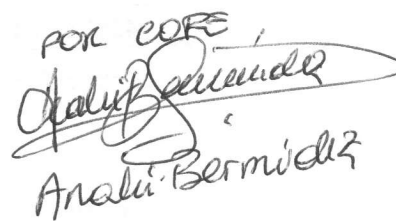 POR COPE
Anahí Bermúdez
Anahí Bermúdez